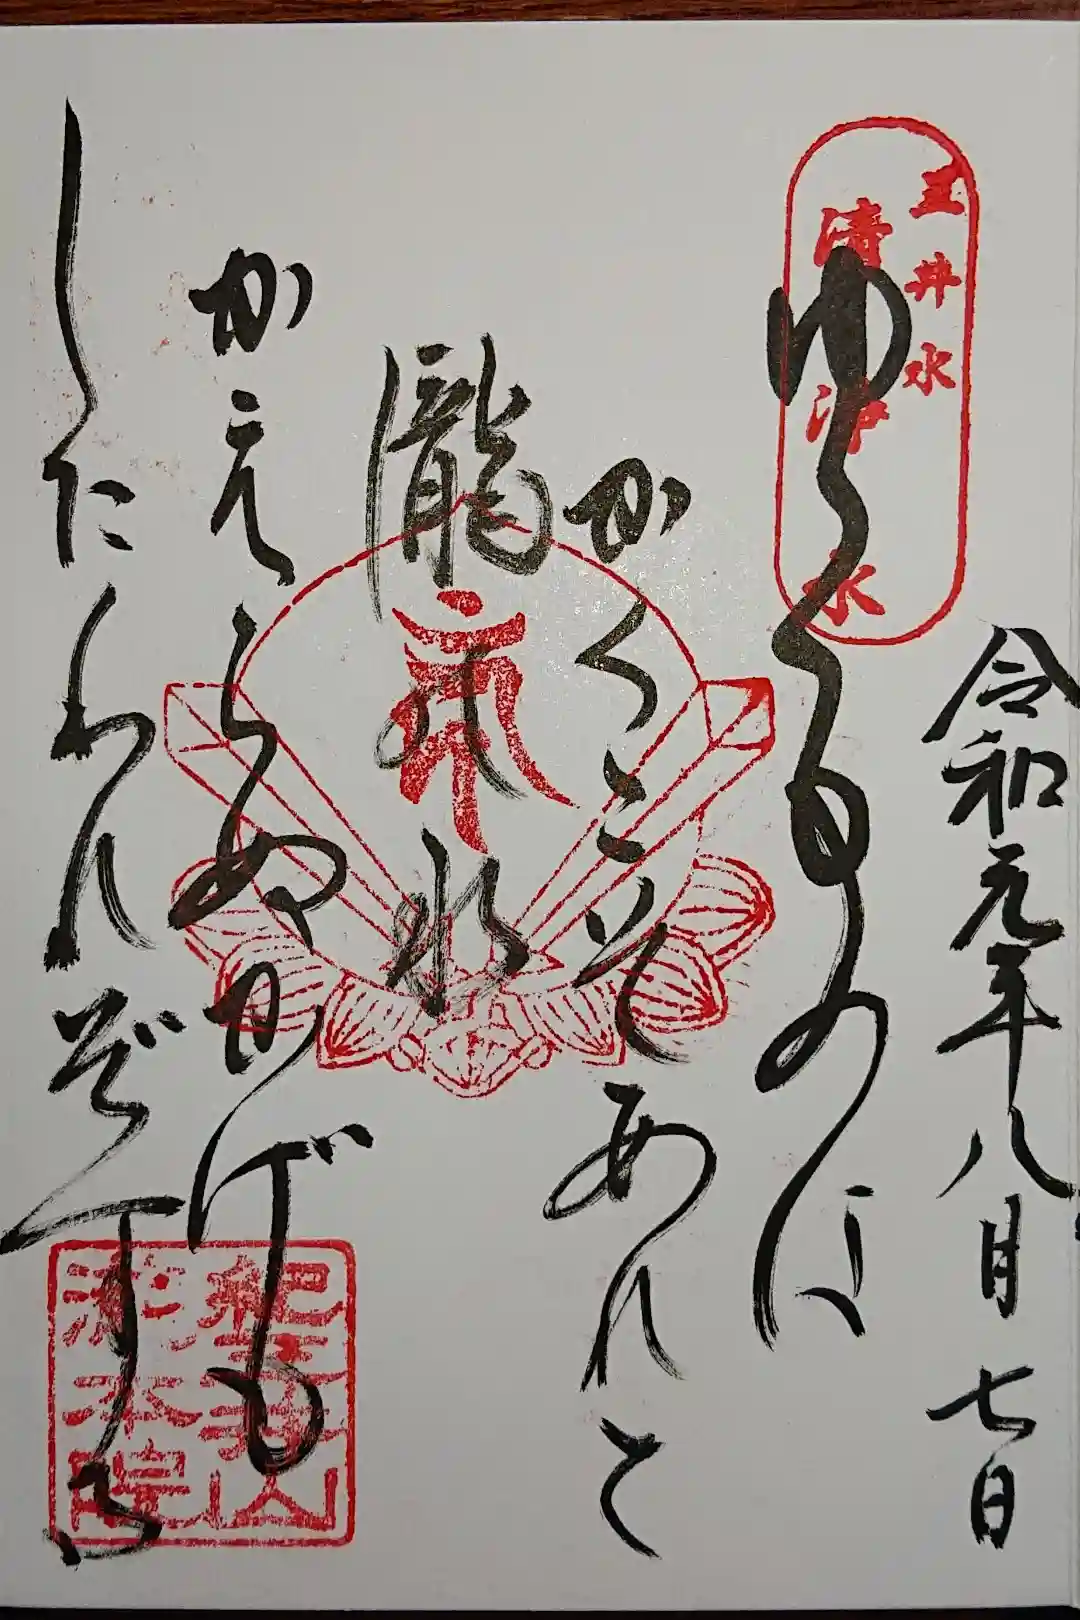 令和元年八月七日
三井水
清浄水
ゆくものは
かくこそあれと
瀧
水
かえらぬかげも
したわれぞする
紀三井山
瀧本院